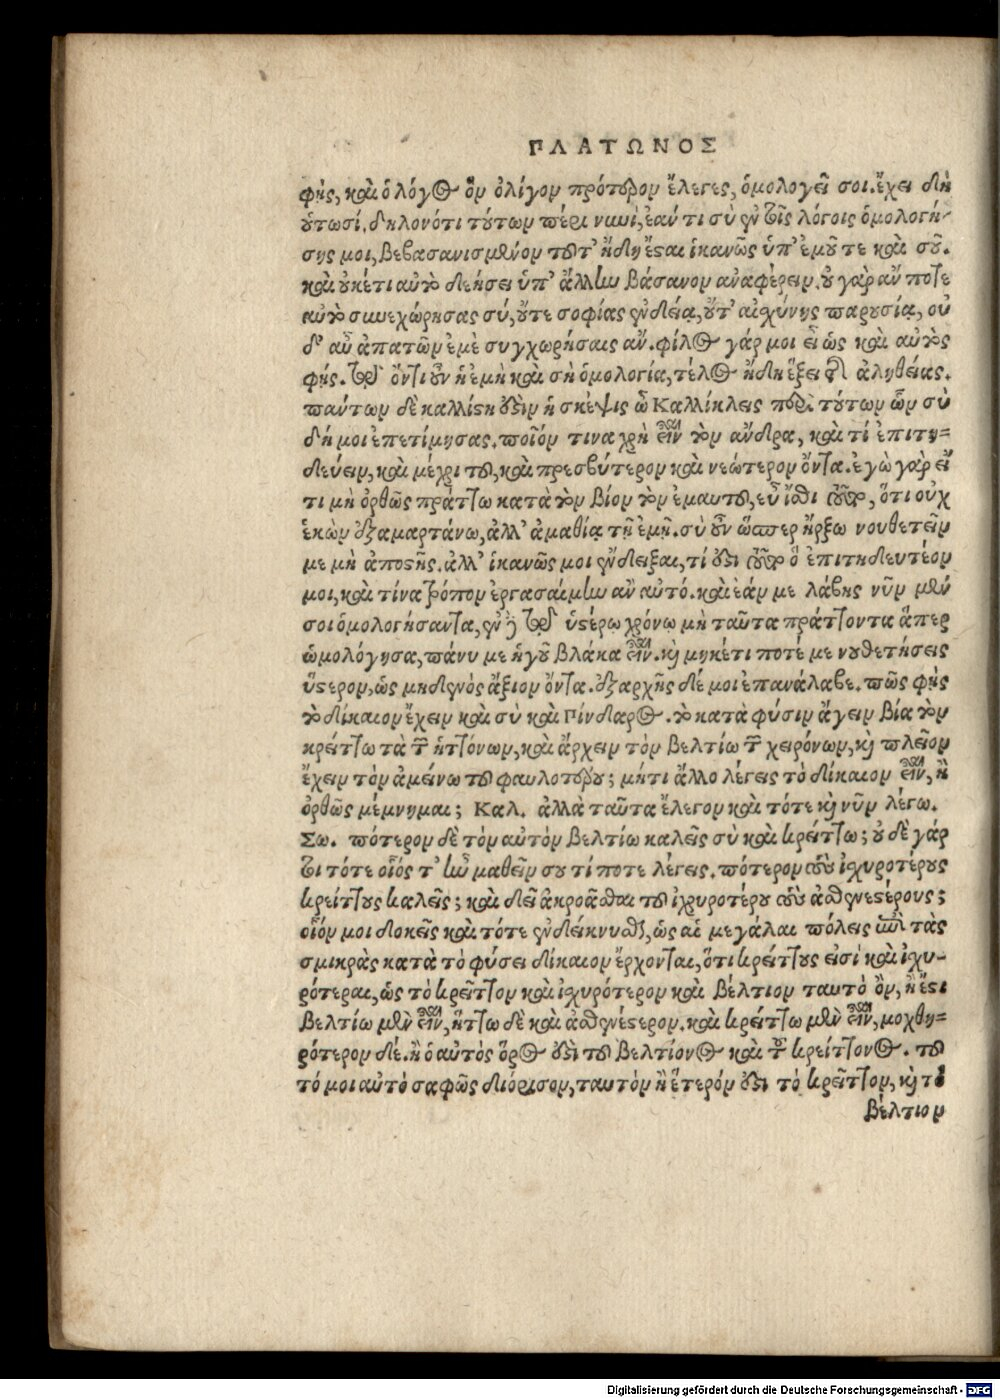 ΠΛΑΤΩΝΟΣ
φῂς, καὶ ὁ λόγος ὃν ὀλίγον πρότερον ἔλεγες, ὁμολογεῖ σοι. ἔχει δὴ
οὑτωσί. δηλονότι τούτων πέρι νυνί, ἐάν τι σὺ ἐν τοῖς λόγοις ὁμολογή-
σῃς μοι, βεβασανισμένον τοῦτ' ἤδη ἔσται ἱκανῶς ὑπ' ἐμοῦ τε καὶ σοῦ.
καὶ οὐκέτι αὐτὸ δεήσει ὑπ' ἄλλην βάσανον ἀναφέρειν. οὐ γὰρ ἄν ποτε
αὐτὸ συνεχώρησας σύ, οὔτε σοφίας ἐνδείᾳ, οὔτ' αἰσχύνης παρουσίᾳ, οὐ
δ' αὖ ἀπατῶν ἐμὲ συγχωρήσαις ἄν. φίλος γάρ μοι εἶ ὡς καὶ αὐτὸς
φῄς. τῷ ὄντι οὖν ἡ ἐμὴ καὶ σὴ ὁμολογία, τέλος ἤδη ἕξει τῆς ἀληθείας.
πάντων δὲ καλλίστη ἐστὶν ἡ σκέψις ὦ Καλλίκλεις περὶ τούτων ὧν σὺ
δή μοι ἐπετίμησας. ποῖόν τινα χρὴ εἶναι τὸν ἄνδρα, καὶ τί ἐπιτη-
δεύειν, καὶ μέχρι του, καὶ πρεσβύτερον καὶ νεώτερον ὄντα. ἐγὼ γὰρ εἴ
τι μὴ ὀρθῶς πράττω κατὰ τὸν βίον τὸν ἐμαυτοῦ, εὖ ἴσθι τοῦτο, ὅτι οὐχ
ἑκὼν ἐξαμαρτάνω, ἀλλ' ἀμαθίᾳ τῇ ἐμῇ. σὺ οὖν ὥσπερ ἤρξω νουθετεῖν
με μὴ ἀποστῇς. ἀλλ' ἱκανῶς μοι ἔνδειξαι, τί ἐστι τοῦτο ὃ ἐπιτηδευτέον
μοι, καὶ τίνα τρόπον ἐργασαίμην ἂν αὐτό. καὶ ἐάν με λάβῃς νῦν μέν
σοι ὁμολογήσαντα, ἐν δὲ τῷ ὑστέρῳ χρόνῳ μὴ ταῦτα πράττοντα ἅπερ
ὡμολόγησα, πάνυ με ἡγοῦ βλᾶκα εἶναι. καὶ μηκέτι ποτέ με νουθετήσεις
ὕστερον, ὡς μηδενὸς ἄξιον ὄντα. ἐξαρχῆς δέ μοι ἐπανάλαβε. πῶς φῂς
τὸ δίκαιον ἔχειν καὶ σὺ καὶ Πίνδαρος. τὸ κατὰ φύσιν ἄγειν βίᾳ τὸν
κρείττω τὰ τῶν ἡττόνων, καὶ ἄρχειν τὸν βελτίω τῶν χειρόνων, καὶ πλεῖον
ἔχειν τὸν ἀμείνω τοῦ φαυλοτέρου; μήτι ἄλλο λέγεις τὸ δίκαιον εἶναι, ἢ
ὀρθῶς μέμνημαι; Καλ. ἀλλὰ ταῦτα ἔλεγον καὶ τότε καὶ νῦν λέγω.
Σω. πότερον δὲ τὸν αὐτὸν βελτίω καλεῖς σὺ καὶ κρείττω; οὐδὲ γάρ
τοι τότε οἷός τ' ἦν μαθεῖν σου τί ποτε λέγεις. πότερον τοὺς ἰσχυροτέρους
κρείττους καλεῖς; καὶ δεῖ ἀκροᾶσθαι τοῦ ἰσχυροτέρου τοὺς ἀσθενεστέρους;
οἷόν μοι δοκεῖς καὶ τότε ἐνδείκνυσθαι, ὡς αἱ μεγάλαι πόλεις ἐπὶ τὰς
σμικρὰς κατὰ τὸ φύσει δίκαιον ἔρχονται, ὅτι κρείττους εἰσὶ καὶ ἰσχυ-
ρότεραι, ὡς τὸ κρεῖττον καὶ ἰσχυρότερον καὶ βέλτιον ταυτὸ ὄν, ἢ ἔστι
βελτίω μὲν εἶναι, ἥττω δὲ καὶ ἀσθενέστερον. καὶ κρείττω μὲν εἶναι, μοχθη-
ρότερον δέ. ἢ ὁ αὐτὸς ὅρος ἐστὶ τοῦ βελτίονος καὶ τοῦ κρείττονος. τοῦ
τό μοι αὐτὸ σαφῶς διόρισον, ταυτὸν ἢ ἕτερόν ἐστι τὸ κρεῖττον, καὶ τὸ
βέλτιον
Digitalisierung gefördert durch die Deutsche Forschungsgemeinschaft - DFG